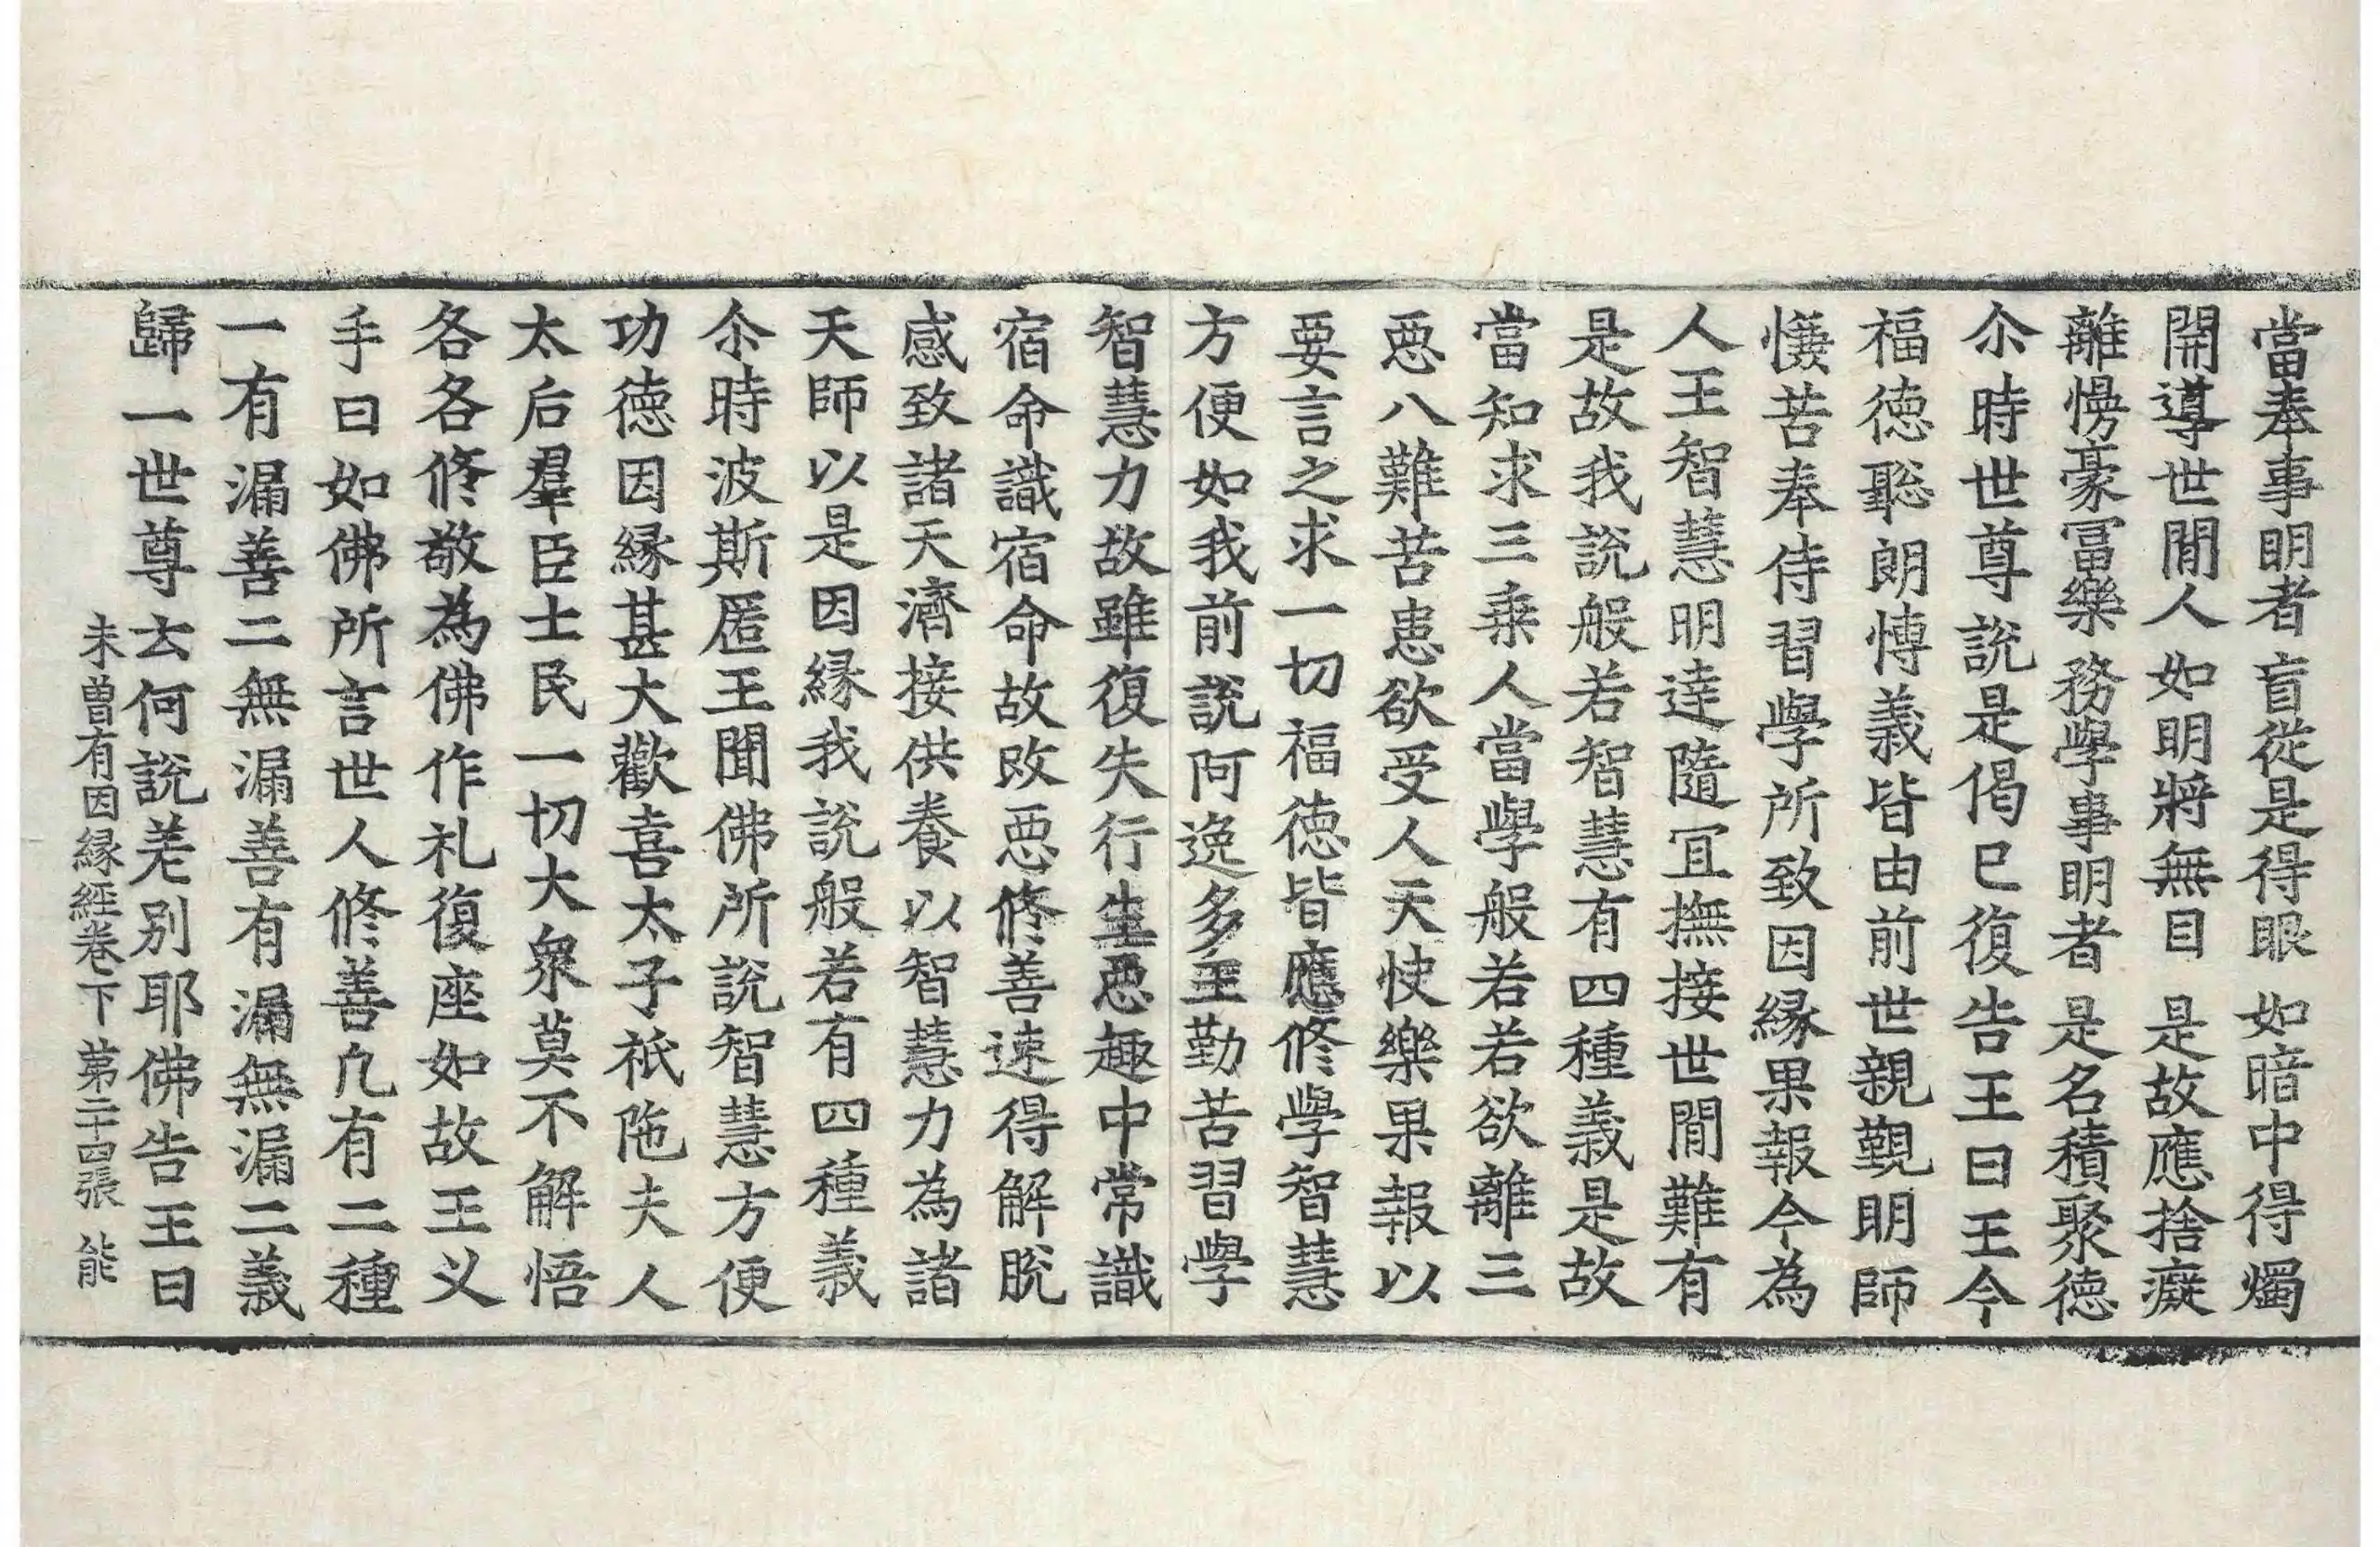 當奉事明者 盲從是得眼 如暗中得燭
開導世間人 如明將無目 是故應捨癡
離憍豪冨樂 務學事明者 是名積聚徳
尒時世尊說是偈巳復告王曰王今
福徳聡朗愽義皆由前世親覲明師
懐苦奉侍習學所致因縁果報今為
人王智慧明達隨冝撫接世間難有
是故我說般若智慧有四種義是故
當知求三乗人當學般若若欲離三
惡八難苦患欲受人天快樂果報以
要言之求一切福徳皆應修學智慧
方便如我前說阿逸多王勤苦習學
智慧力故雖復失行生惡趣中常識
宿命識宿命故改惡修善速得解脫
感致諸天濟接供養以智慧力為諸
天師以是因縁我說般若有四種義
尒時波斯匿王聞佛所說智慧方便
功徳因縁甚大歡喜太子祇陁夫人
太后羣臣士民一切大衆莫不解悟
各各修敬為佛作礼復座如故王义
手曰如佛所言世人修善凢有二種
一有漏善二無漏善有漏無漏二義
歸一世尊云何說差別耶佛告王曰
未曽有因縁經卷下 第二十四張 能